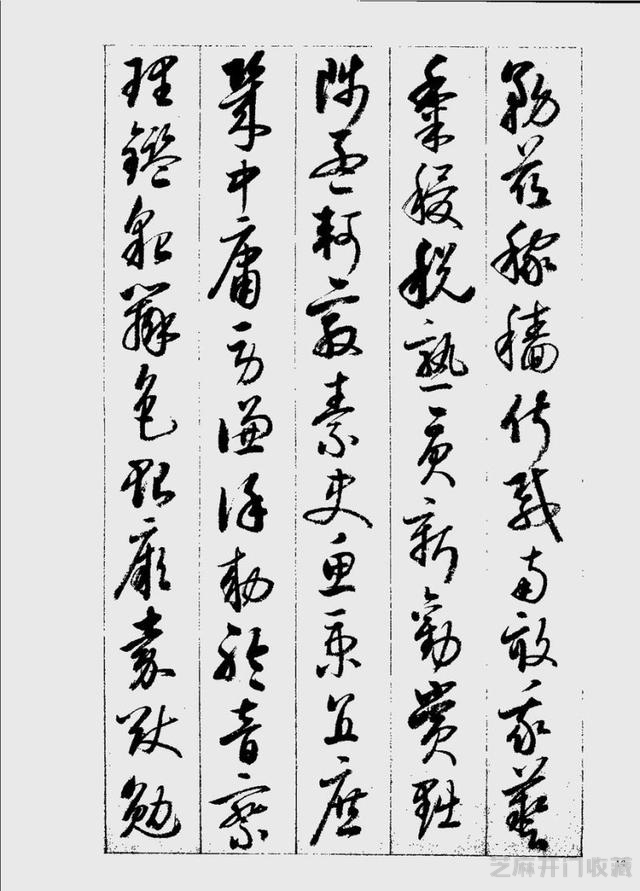 務茲稼穡俶載南畝我藝
黍稷稅熟貢新勸賞黜
陟孟軻敦素史魚秉直庶
幾中庸勞謙謹敕聆音察
理鑑貌辨色貽厥嘉猷勉
芝麻开门收藏